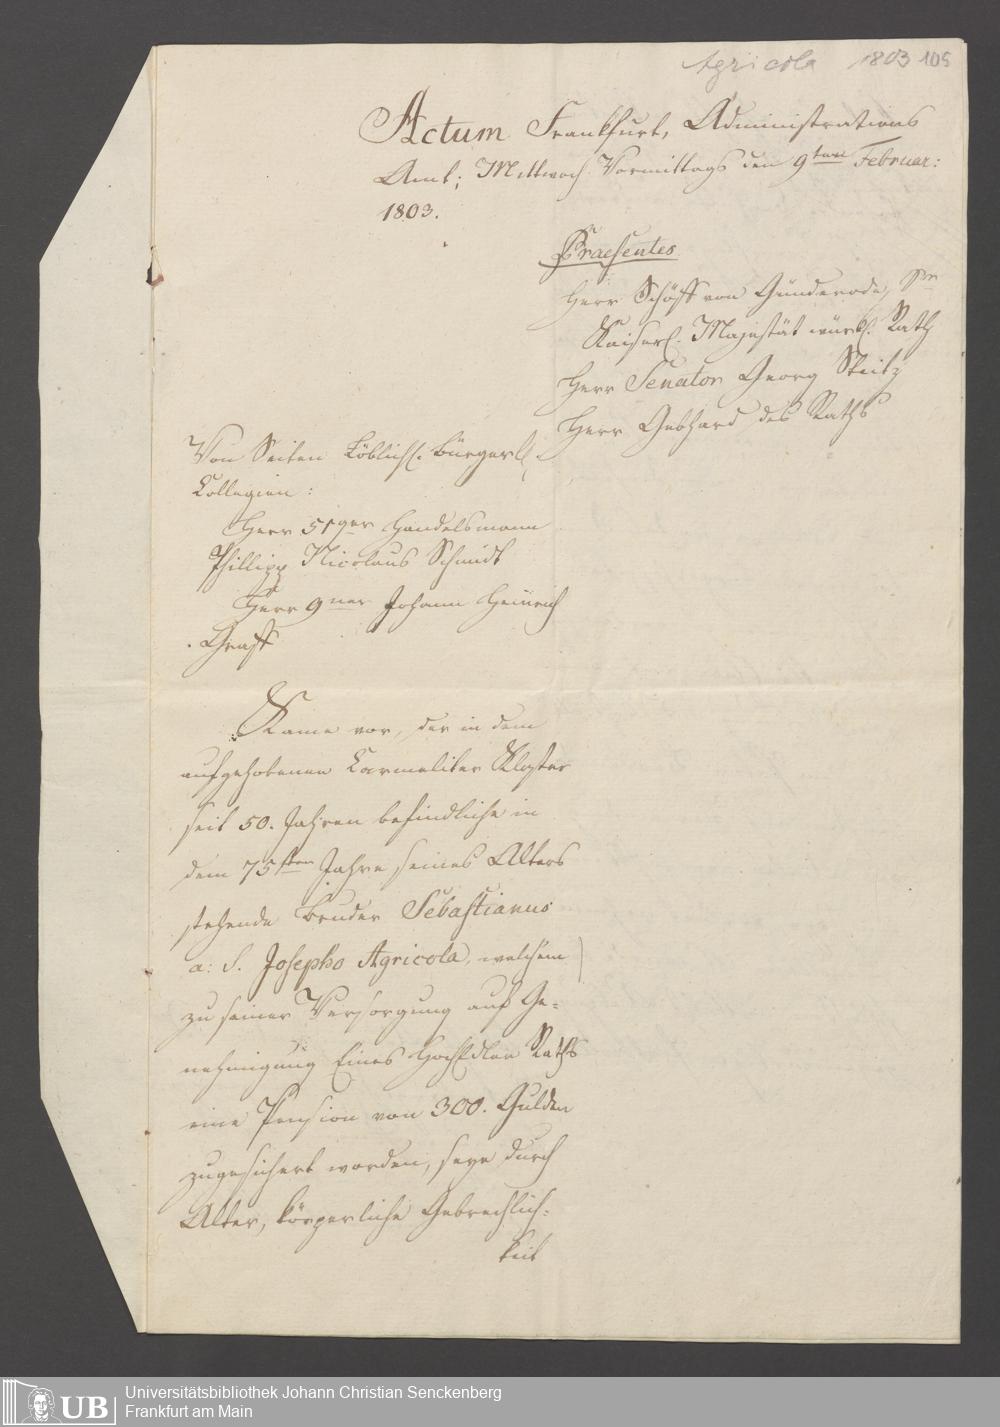 Agricola 1803 105
Actum Frankfurt, Administrations
Amt; Mittwoch Vormittags den 9ten Februar:
1803.
Praesentes
Herr Schöff von Günderode, Sr
Kaiserl. Majestät würkl. Rath
Herr Senator Georg Steitz
Herr Gebhard des Raths
Von Seiten Löblich. bürgerl.
Collegien:
Herr 51ger Handelsmann
Phillipp Nicolaus Schmidt
Herr 9ner Johann Heinrich
Graff
Kame vor, der in dem
aufgehobenen Carmeliter Kloster
seit 50. Jahren befindliche in
dem 75sten Jahre seines Alters
stehende Bruder Sebastianus
a: S. Josepho Agricola, welchem
zu seiner Versorgung auf Ge=
nehmigung Eines HochEdlen Raths
eine Pension von 300. Gulden
zugesichert worden, seye durch
Alter, körperliche Gebrechlich=
keit
UB
Universitätsbibliothek Johann Christian Senckenberg
Frankfurt am Main